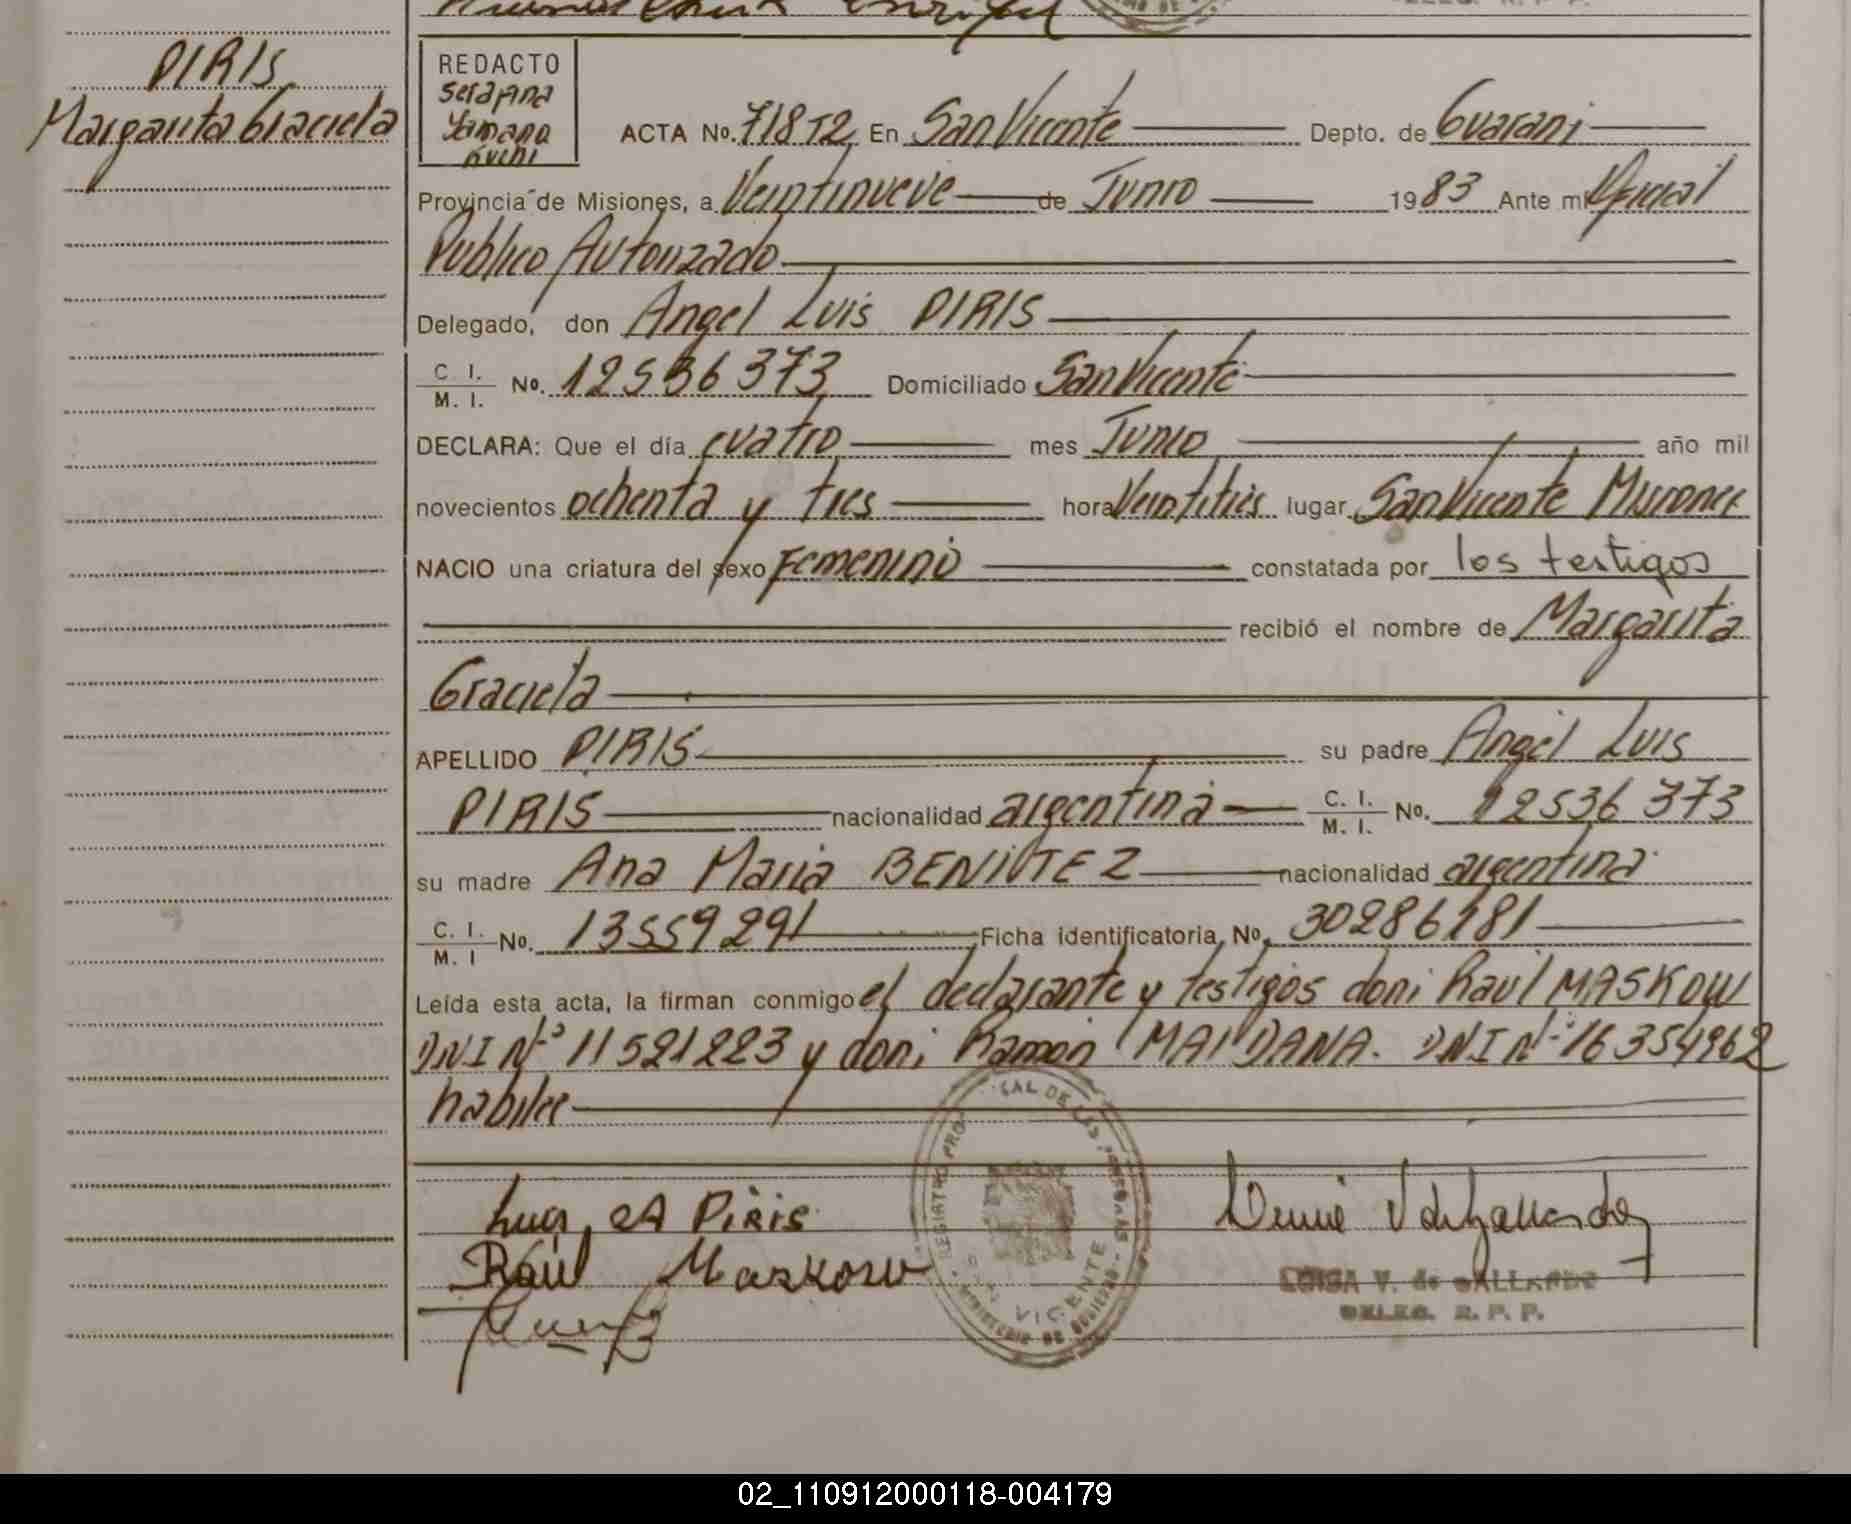 PIRIS
Margarita Graciela
REDACTO
Serafina
Yamana
Kuchi
ACTA No. 718 T2 En San Vicente Depto. de Guarani
Provincia de Misiones, a Veintinueve de Junio 1983 Ante mi Oficial
Publico Autorizado
Delegado, don Angel Luis PIRIS
C. I. / M. I. No. 12536373 Domiciliado San Vicente
DECLARA: Que el día cuatro mes Junio año mil
novecientos ochenta y tres hora Veintitrés lugar San Vicente Misiones
NACIO una criatura del sexo Femenino constatada por los testigos
recibió el nombre de Margarita
Graciela
APELLIDO PIRIS su padre Angel Luis
PIRIS nacionalidad argentina C. I. / M. I. No. 12536373
su madre Ana Maria BENITEZ nacionalidad argentina
C. I. / M. I No. 13559291 Ficha identificatoria No. 30286181
Leída esta acta, la firman conmigo el declarante y testigos don: Raúl MASKOW
DNI Nº 11521223 y don: Ramon MAIDANA. DNI Nº 16354962
habiles
Luis A Piris
Raúl Maskow
REGISTRO PROV. DE LAS PERSONAS
SAN VICENTE
MINISTERIO DE GOBIERNO
LUISA V. de GALLARDO
DELEG. R. P. P.
02_110912000118-004179